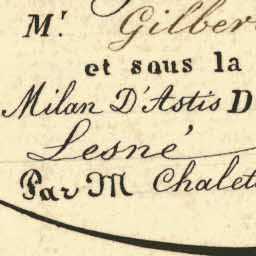 Mr. Gilber
et sous la
Milan D'Astis D
Lesné
Par M Chalet